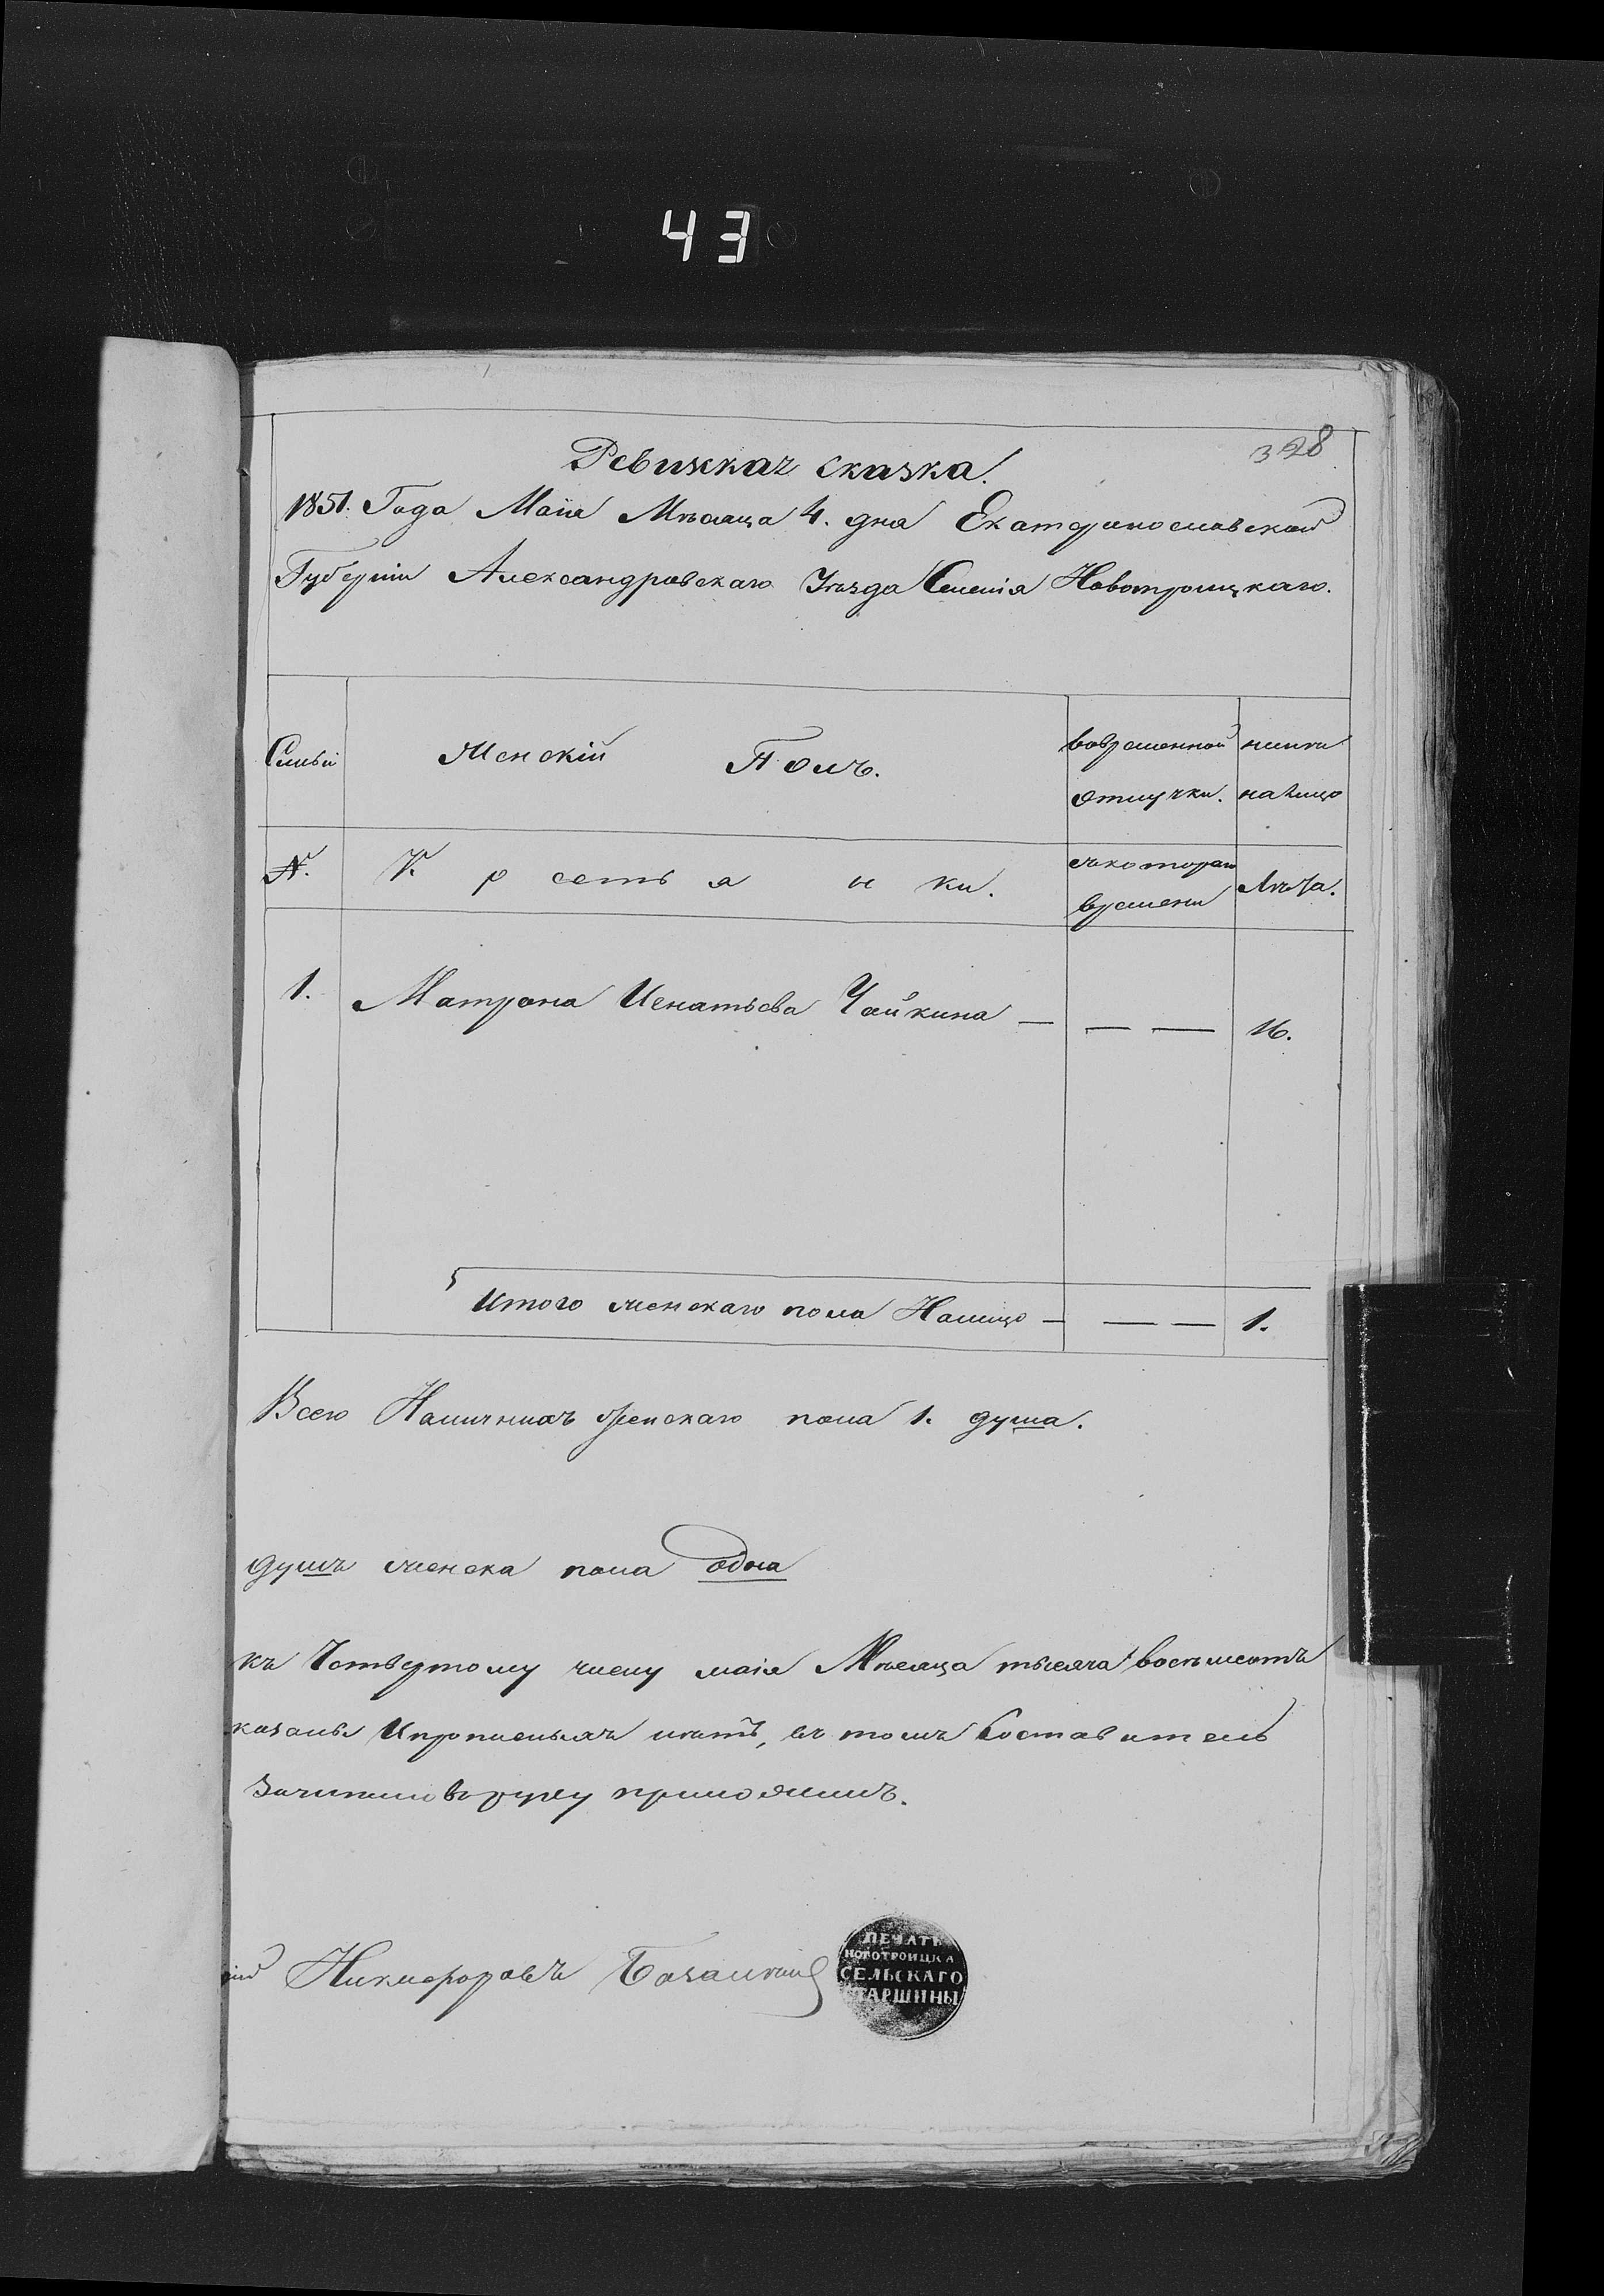 43
328
Ревижская сказка.
1851. Года Маiя Мѣсяца 4. дня Екатеринославской
Губернiи Александровскаго Уѣзда Селенiя Новотроицкаго.
Семьи Женскiй Полъ. вовременной нынѣ
отлучки. налицо
№. Крестьянки. съкотораго Лѣта.
времени
1. Матрона Игнатьева Чайкина — — — 16.
Итого женскаго пола Налицо — — — 1.
Всего Наличныхъ женскаго пола 1. душа.
душъ женска пола одна
къ Четвертому числу маiя Мѣсяца тысяча восемьсотъ
казаны Ипрописныхъ нѣтъ, въ томъ Составитель
приложилъ.
Никифоровъ
ПЕЧАТЬ
НОВОТРОИЦКА
СЕЛЬСКАГО
СТАРШИНЫ